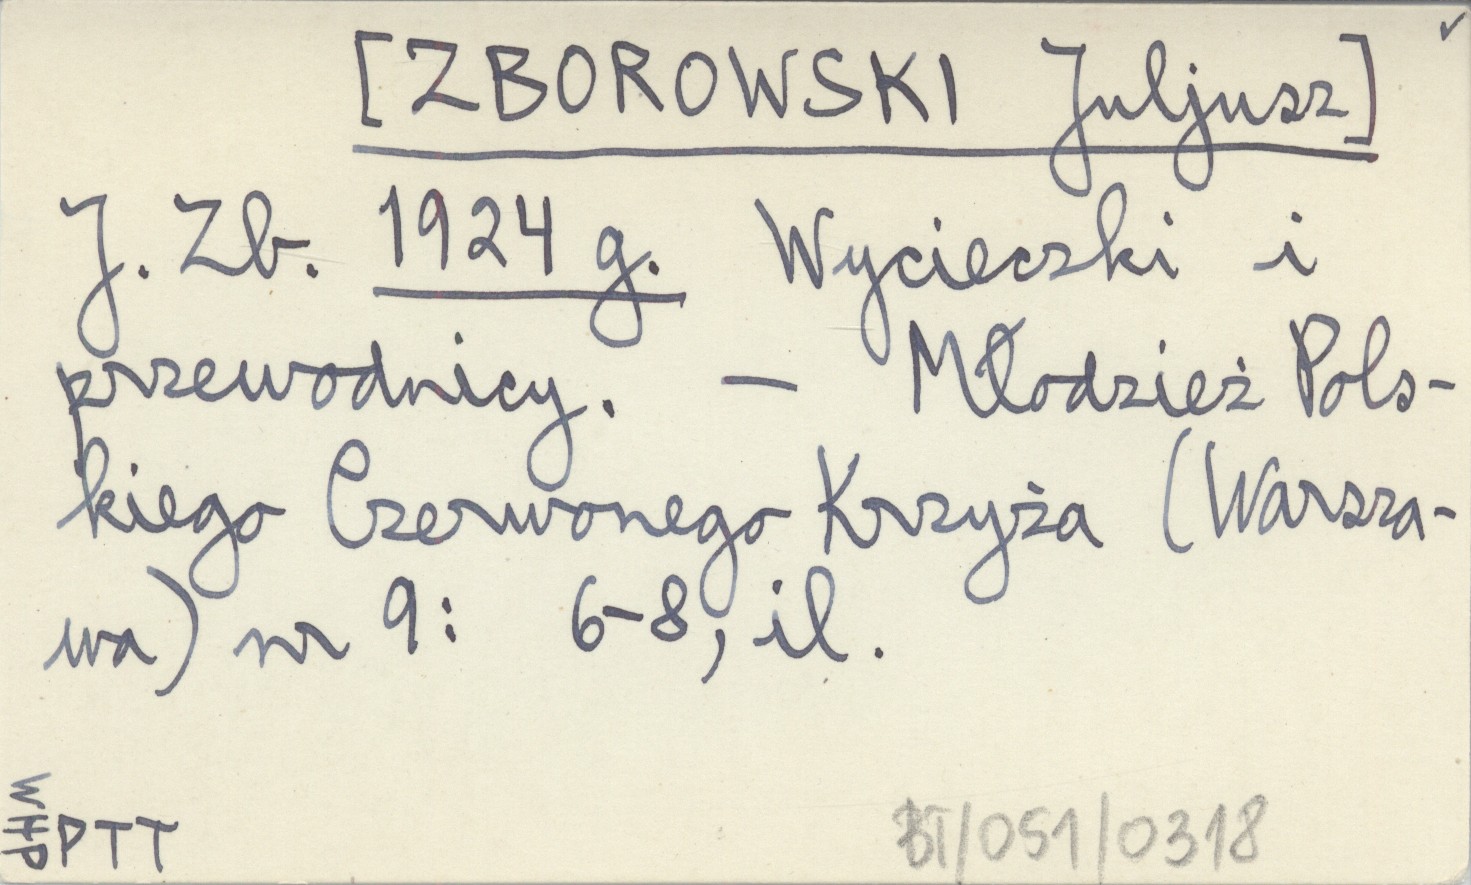 [ZBOROWSKI Juljusz]
J. Zb. 1924 g. Wycieczki i
przewodnicy. — Młodzież Pols-
kiego Czerwonego Krzyża (Warsza-
wa) nr 9: 6-8, il.
WHP
PTT
BT/051/0318